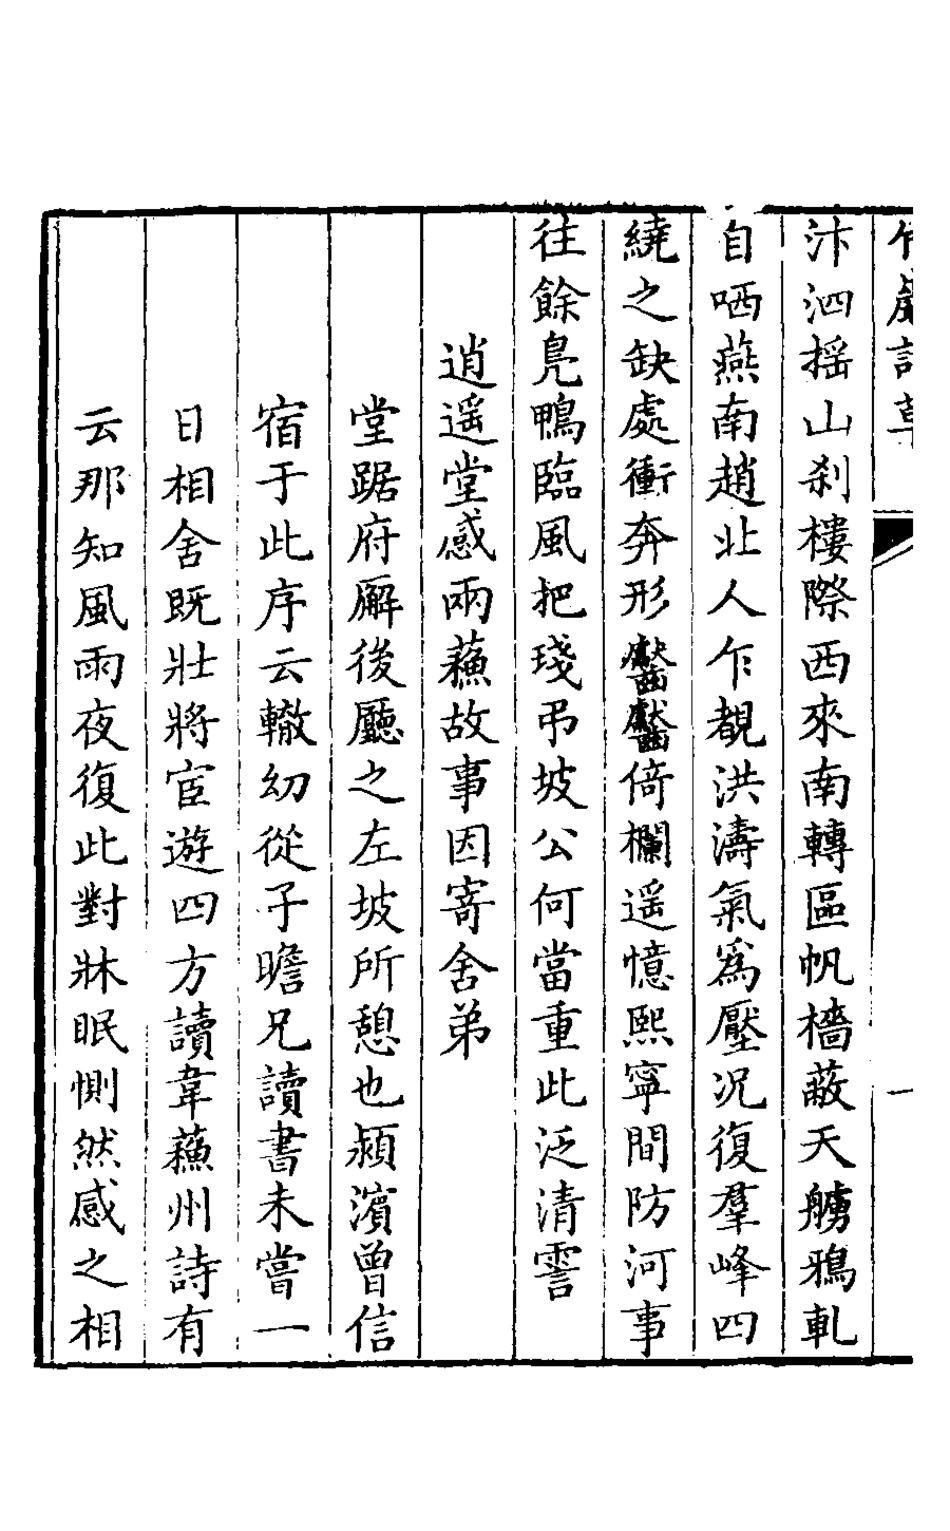 竹巖詩草
一
汴泗搖山刹樓際西來南轉區帆檣蔽天艣鴉軋
自哂燕南趙北人乍覩洪濤氣爲壓況復羣峰四
繞之缺處衝奔形倚欄遥憶熙寧間防河事
往餘鳧鴨臨風把琖弔坡公何當重此泛清霅
逍遥堂感兩蘓故事因寄舍弟
堂踞府廨後廳之左坡所憩也潁濵曾信
宿于此序云轍幼從子瞻兄讀書未嘗一
日相舍既壯將宦遊四方讀韋蘓州詩有
云那知風雨夜復此對牀眠惻然感之相